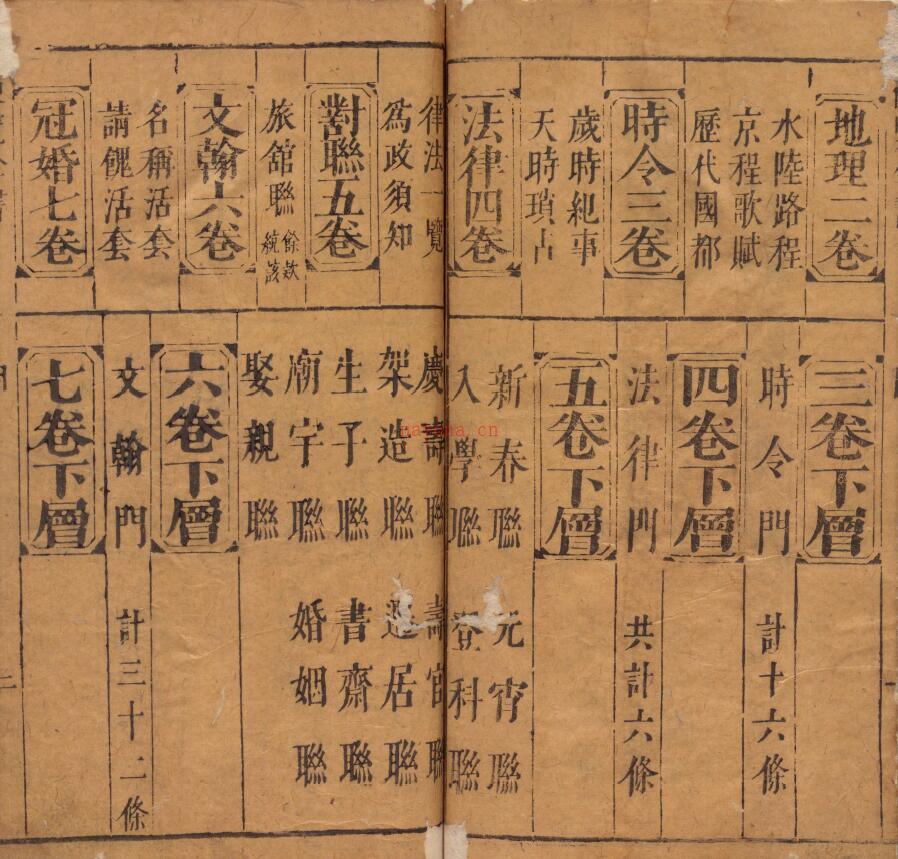 地理二卷
水陸路程
京程歌賦
歷代國都
時令三卷
歲時紀事
天時瑣占
法律四卷
律法一覽
為政須知
對聯五卷
旅舘聯 餘欵統該
文翰六卷
名稱活套
請餽活套
冠婚七卷
三卷下層
時令門 計十六條
四卷下層
法律門 共計六條
五卷下層
新春聯 元宵聯
入學聯 登科聯
慶壽聯 壽官聯
架造聯 遷居聯
生子聯 書齋聯
廟宇聯 婚姻聯
娶親聯
六卷下層
文翰門 計三十二條
七卷下層
二